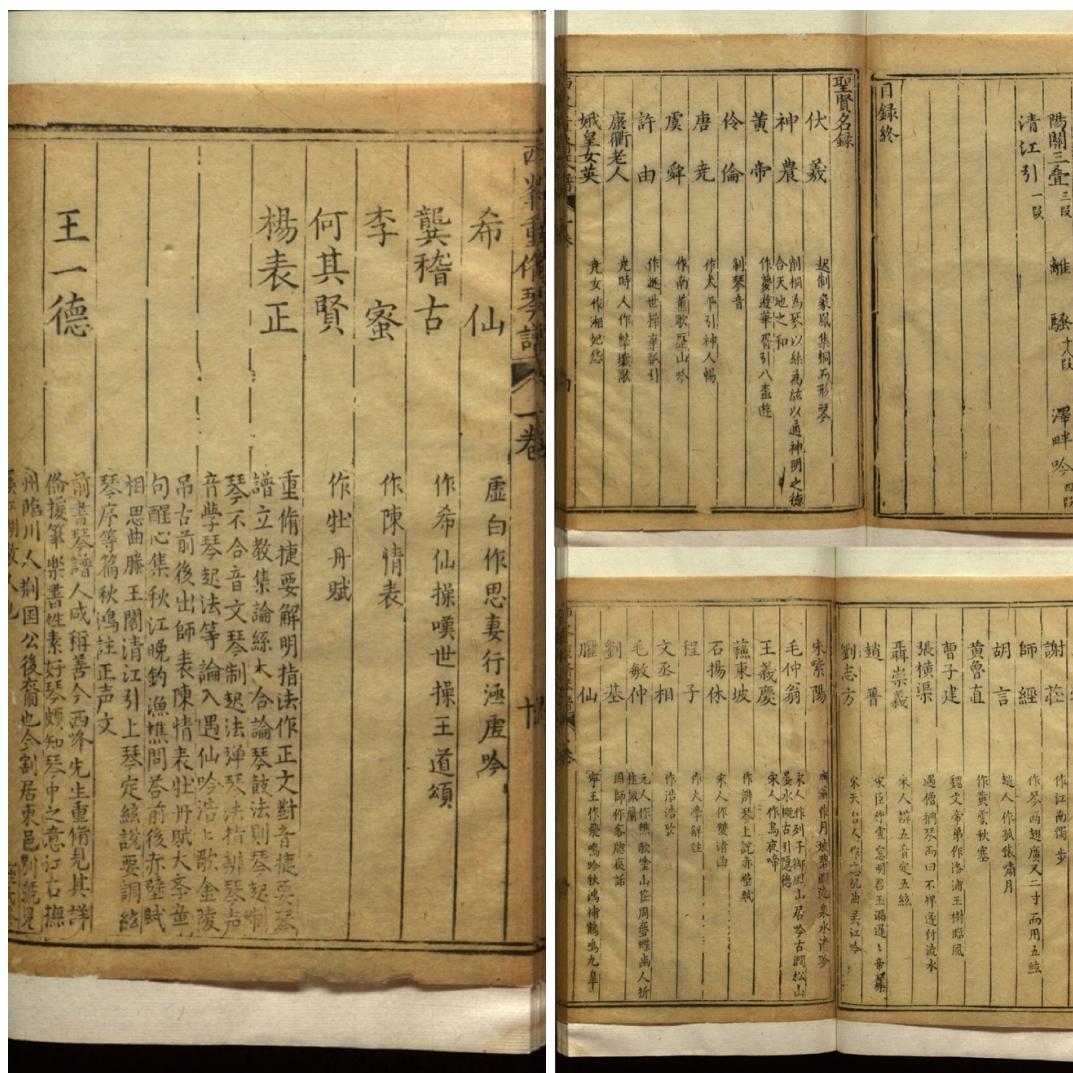 西峯重修琴譜 一卷
希仙 虛白作思妻行涵虛吟
龔稽古 作希仙操嘆世操王道頌
李蜜 作陳情表
何其賢 作牡丹賦
楊表正 重脩捷要解明指法作正文對音捷要琴
譜立教集論絲木合論琴鼓法則琴起制
琴不合音文琴制起法弹琴法指辨琴声
音學琴起法等論入遇仙吟浩上歌金陵
吊古前後出師表陳情表牡丹賦大李章
句醒心集秋江晚釣漁樵問荅前後赤壁賦
相思曲滕王閣清江引上琴定絃說要調絃
琴序等篇秋鴻註正声文
王一德 前書琴譜人咸稱善今西峰先生重脩見其詳
俻援筆樂書性素好琴頗知琴中之意江右撫
州臨川人荆国公後裔也今割居東邑別號見
陽關三疊 三段 離騷 十八段 澤畔吟 四段
清江引 一段
目録終
聖賢名録
伏羲 趍制象鳳集桐而形琴
神農 削桐為琴以絲為絃以通神明之德
合天地之和
黄帝 作夢遊華胥引八盃遊
伶倫 制琴音
唐尭 作太平引神人暢
虞舜 作南薫歌歴山吟
許由 作遯世操棄瓢引
康衢老人 尭時人作擊壤歌
娥皇女英 尭女作湘妃怨
謝莊 作江南獨步
師經 作琴兩翅廣又二寸而用五絃
胡言 趙人作狐猿嘯月
黄魯直 作黄雲秋塞
曹子建 魏文帝弟作洛浦玉樹臨風
張横渠 遇僧捫琴而曰不祥遂付流水
聶崇義 宋人辨五音定五絃
趙晋 宋臣作雪窓明君玉漏遲
劉志方 宋天台人作忘机曲吴江吟
朱紫陽 作月坡碧澗流泉水清吟
毛仲翁 宋人作列子御風山居吟古澗松山
晏水概古引隱德
王義慶 宋人作烏夜啼
蘓東坡 作辨琴上說赤壁賦
石揚休 宋人作雙清曲
程子 作大學解註
文丞相 作浩浩歌
毛敏仲 元人作樵歌塗山莊周夢蝶幽人折
桂佩蘭
劉基 国師作客牕夜話
臞仙 寧王作飛鳴吟秋鴻補鶴鳴九臯